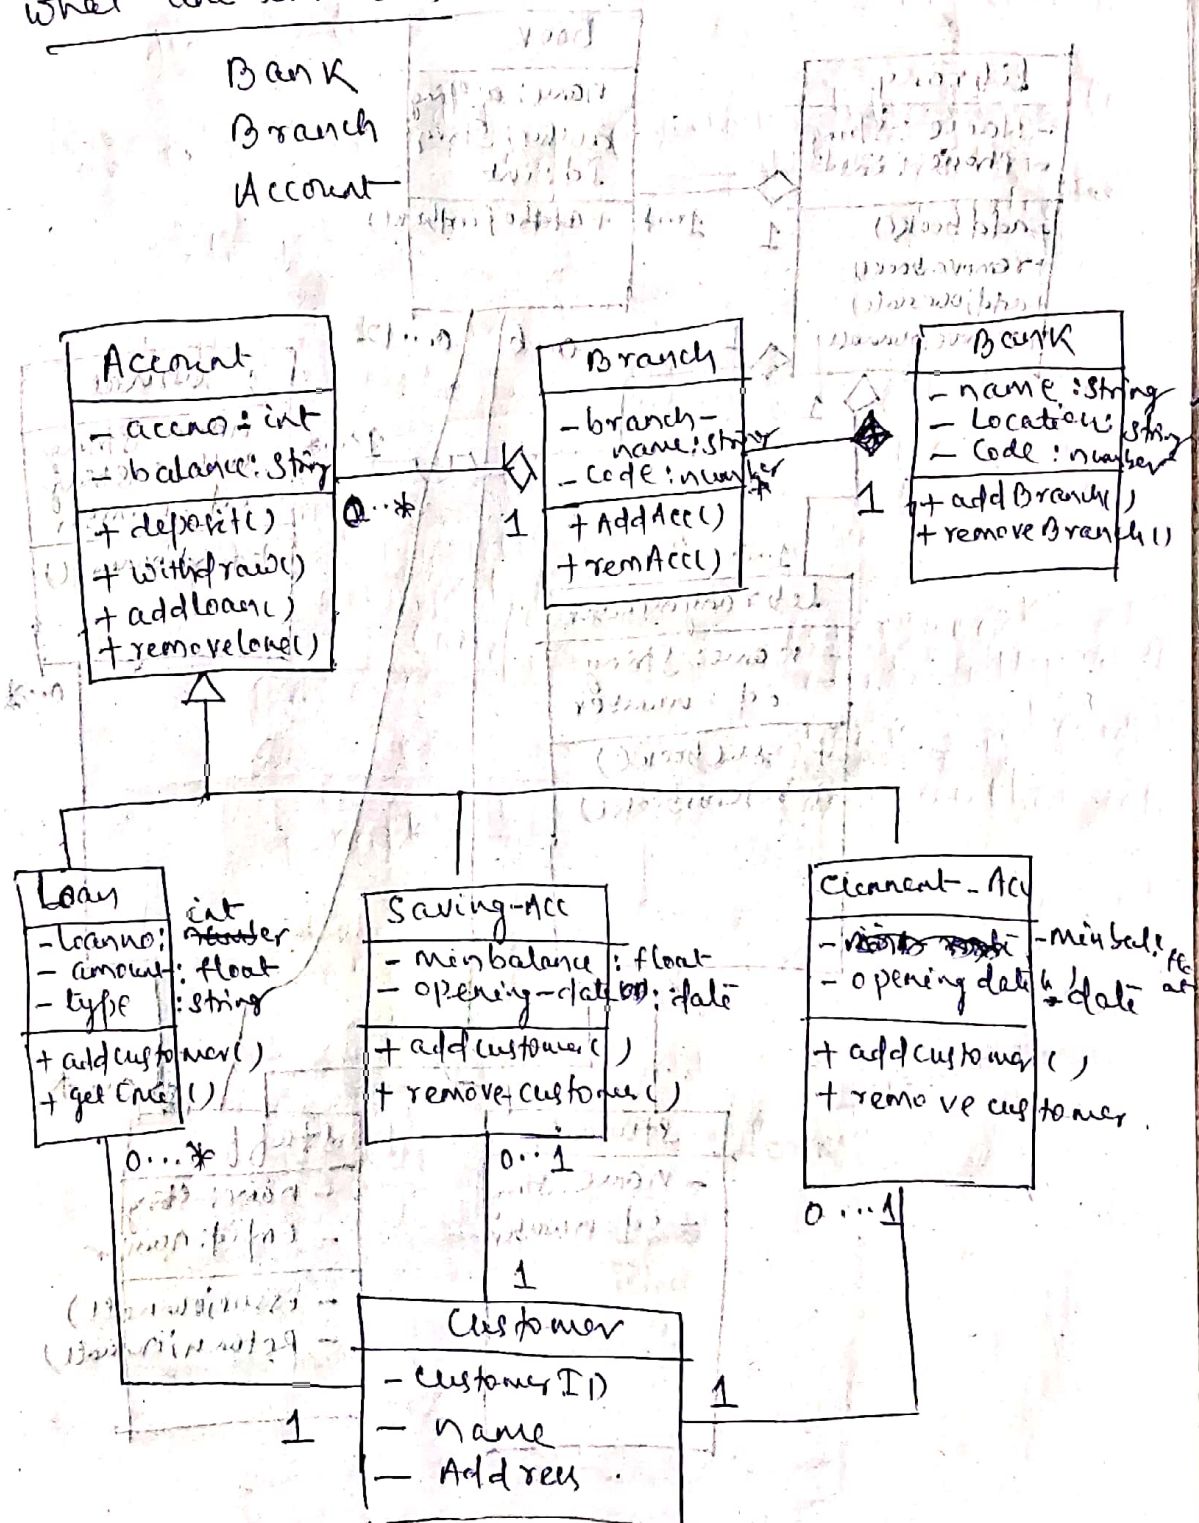 what
Bank
Branch
Account
Account
- accno: int
- balance: String
+ deposit()
+ withdraw()
+ addLoan()
+ removelone()
0..*
1
Branch
- branch-
name: string
- Code: number
*
+ AddAcc()
+ remAcc()
1
Bank
- name: String
- Location: String
- Code: number
+ addBranch()
+ removeBranch()
Loan
- Loanno: int
- amount: float
- type: string
+ addcustomer()
+ get ()
0...*
Saving-Acc
- Minbalance: float
- opening-date: date
+ addcustomer()
+ remove customer()
0..1
- Acc
- Minbal: float
- opening date: date
+ addcustomer()
+ remove customer.
0...1
1
Customer
- CustomerID
- name
- Address.
1
1